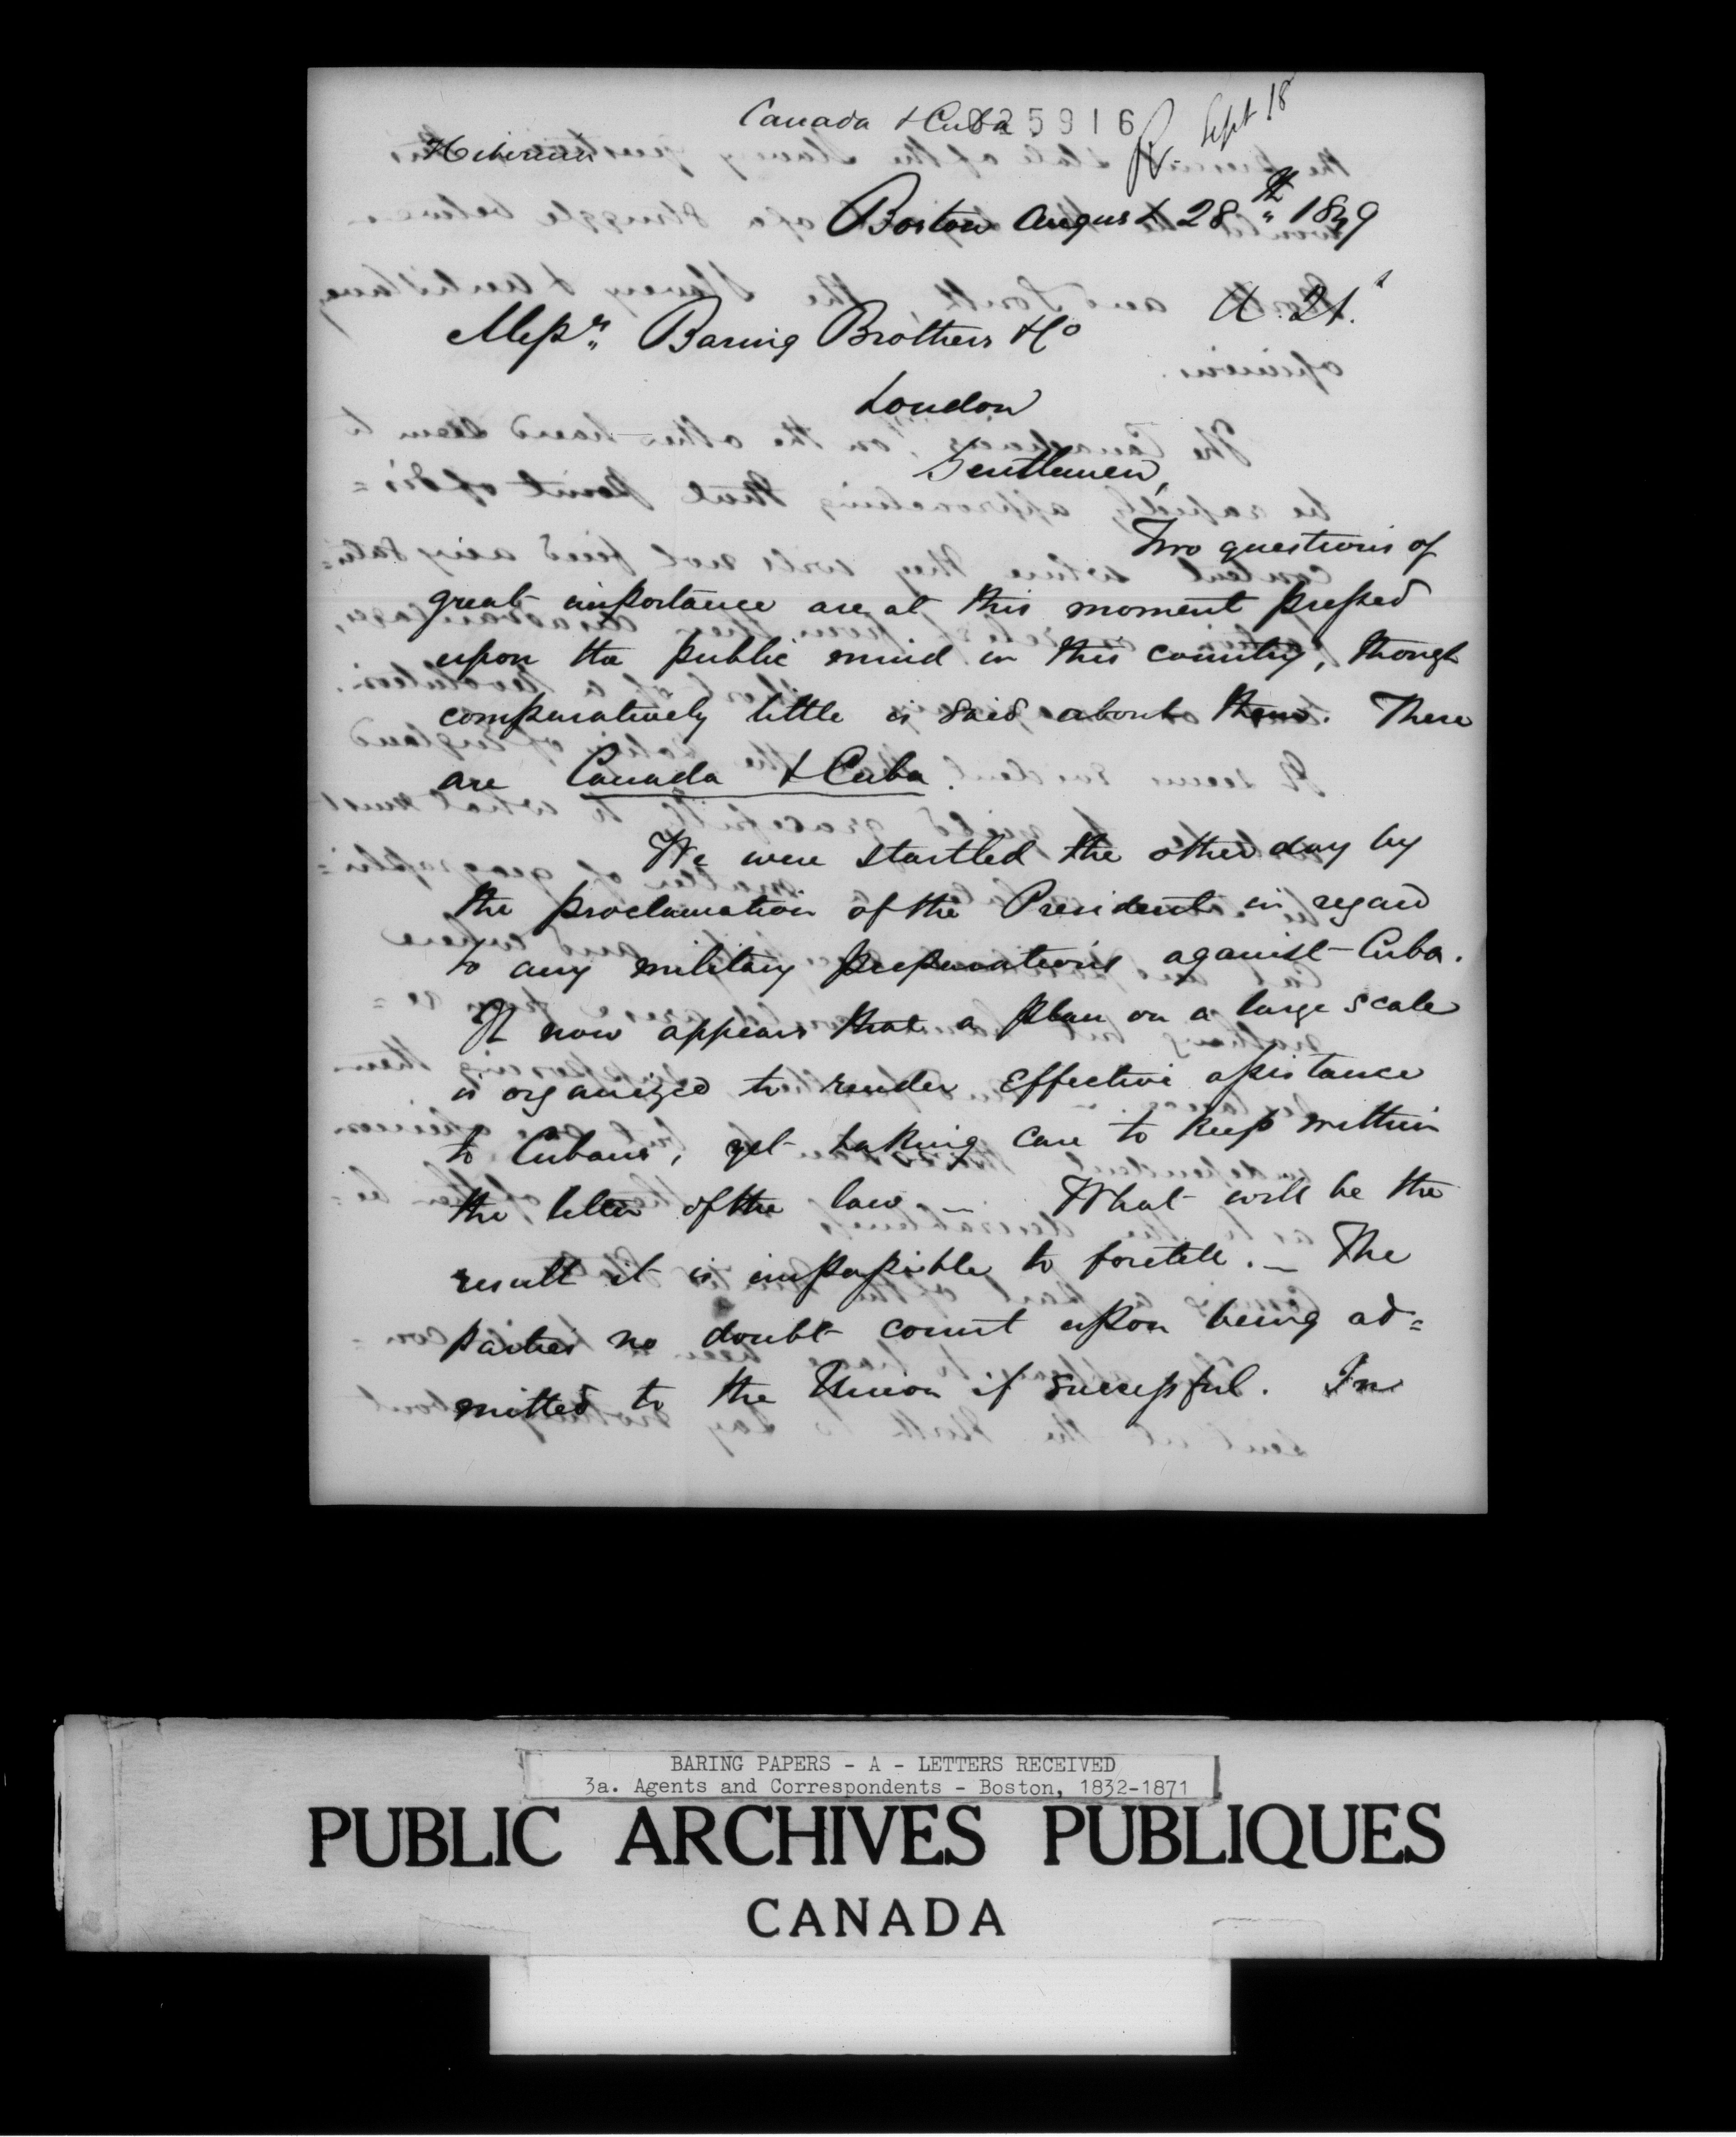 Canada & Cuba
025916
R. Sept 18
Hibernia
Boston August 28th 1849
A. 21.
Messrs Baring Brothers & Co
London
Gentlemen,
Two questions of
great importance are at this moment pressed
upon the public mind in this country, though
comparatively little is said about them. These
are Canada & Cuba.
We were startled the other day by
the proclamation of the President in regard
to any military preparations against Cuba.
It now appears that a plan on a large scale
is organized to render effective assistance
to Cubans, yet taking care to keep within
the letter of the law. — What will be the
result it is impossible to foretell. — The
parties no doubt count upon being ad=
mitted to the Union if successful. In
BARING PAPERS - A - LETTERS RECEIVED
3a. Agents and Correspondents - Boston, 1832-1871
PUBLIC ARCHIVES PUBLIQUES
CANADA